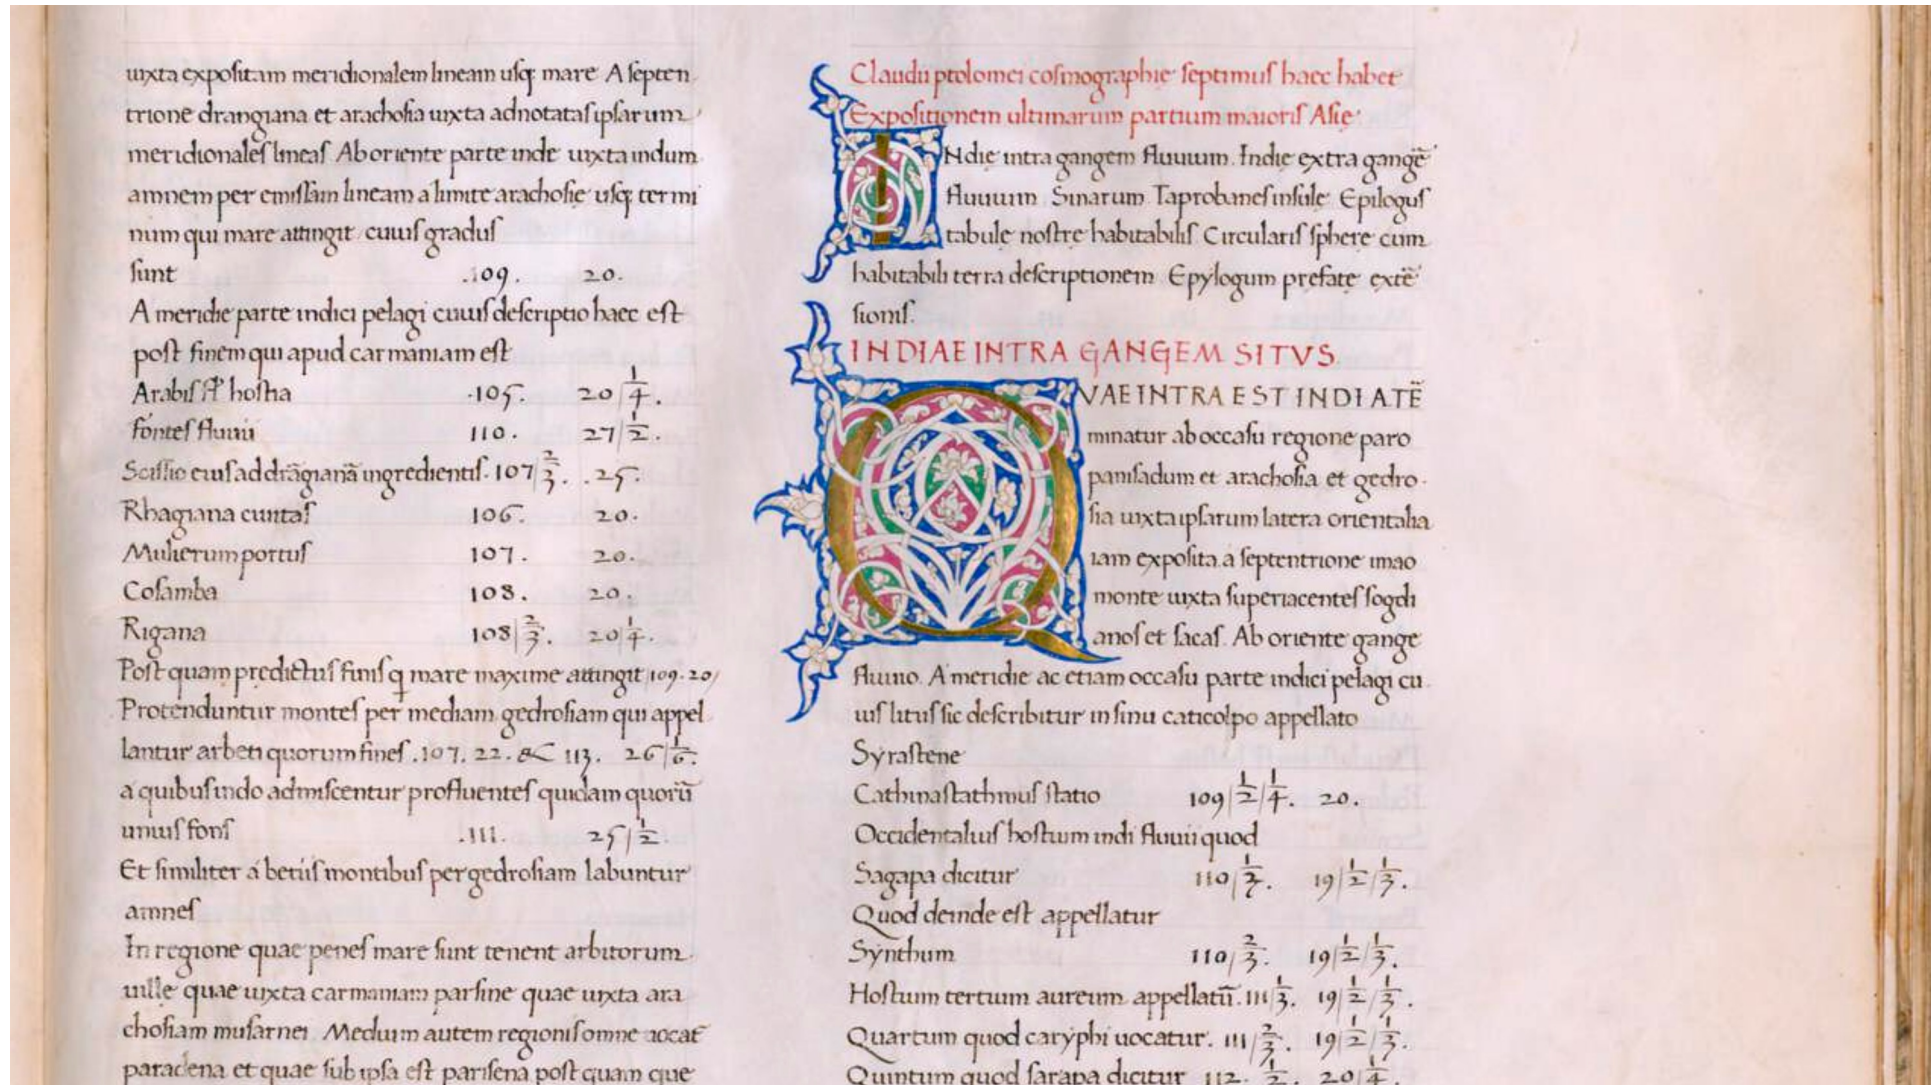 iuxta expositam meridionalem lineam usq; mare A septen
trione drangiana et arachosia iuxta adnotatas ipsarum
meridionales lineas Ab oriente parte inde iuxta indum
amnem per emissam lineam a limite arachosię usq; termi
num qui mare attingit cuius gradus
sunt .109. 20.
A meridie parte indici pelagi cuius descriptio haec est
post finem qui apud carmaniam est
Arabis hostia .105. 20|1/4.
fontes fluuii 110. 27|1/2.
Scissio eius ad drãgianã ingredientis. 107|2/3. .25.
Rhagiana ciuitas 106. 20.
Mulierum portus 107. 20.
Cosamba 108. 20.
Rigana 108|2/3. 20|1/4.
Post quam predictus finis q mare maxime attingit |109.20/
Protenduntur montes per mediam gedrosiam qui appel
lantur arbeti quorum fines .107. 22. & 113. 26|1/6.
a quibus indo admiscentur profluentes quidam quorũ
unius fons .111. 25|1/2.
Et similiter a betiis montibus per gedrosiam labuntur
amnes
In regione quae penes mare sunt tenent arbitorum
uille quae iuxta carmaniam parsine quae iuxta ara
chosiam musarnei Medium autem regionis omne uocat̃
paradena et quae sub ipsa est parisena post quam que
Claudii ptolomei cosmographię septimus haec habet
Expositionem ultimarum partium maioris Asię
INdię intra gangem fluuium. Indię extra gangẽ
fluuium Sinarum Taprobanes insule Epilogus
tabule nostre habitabilis Circularis sphere cum
habitabili terra descriptionem Epylogum prefate extẽ
sionis.
INDIAE INTRA GANGEM SITVS
QVAE INTRA EST INDIA TẼ
minatur ab occasu regione paro
panisadum et arachosia et gedro
sia iuxta ipsarum latera orientalia
iam exposita a septentrione imao
monte iuxta superiacentes sogdi
anos et sacas. Ab oriente gange
fluuio. A meridie ac etiam occasu parte indici pelagi cu
ius litus sic describitur in sinu caticolpo appellato
Syrastene
Cathinastathmus statio 109|1/2|1/4. 20.
Occidentalius hostium indi fluuii quod
Sagapa dicitur 110|1/3. 19|1/2|1/3.
Quod deinde est appellatur
Synthum 110|2/3. 19|1/2|1/3.
Hostium tertium aureum appellatũ. 111|1/3. 19|1/2|1/3.
Quartum quod caryphi uocatur. 111|2/3. 19|1/2|1/3.
Quintum quod sarapa dicitur 112. 1/2. 20|1/4.